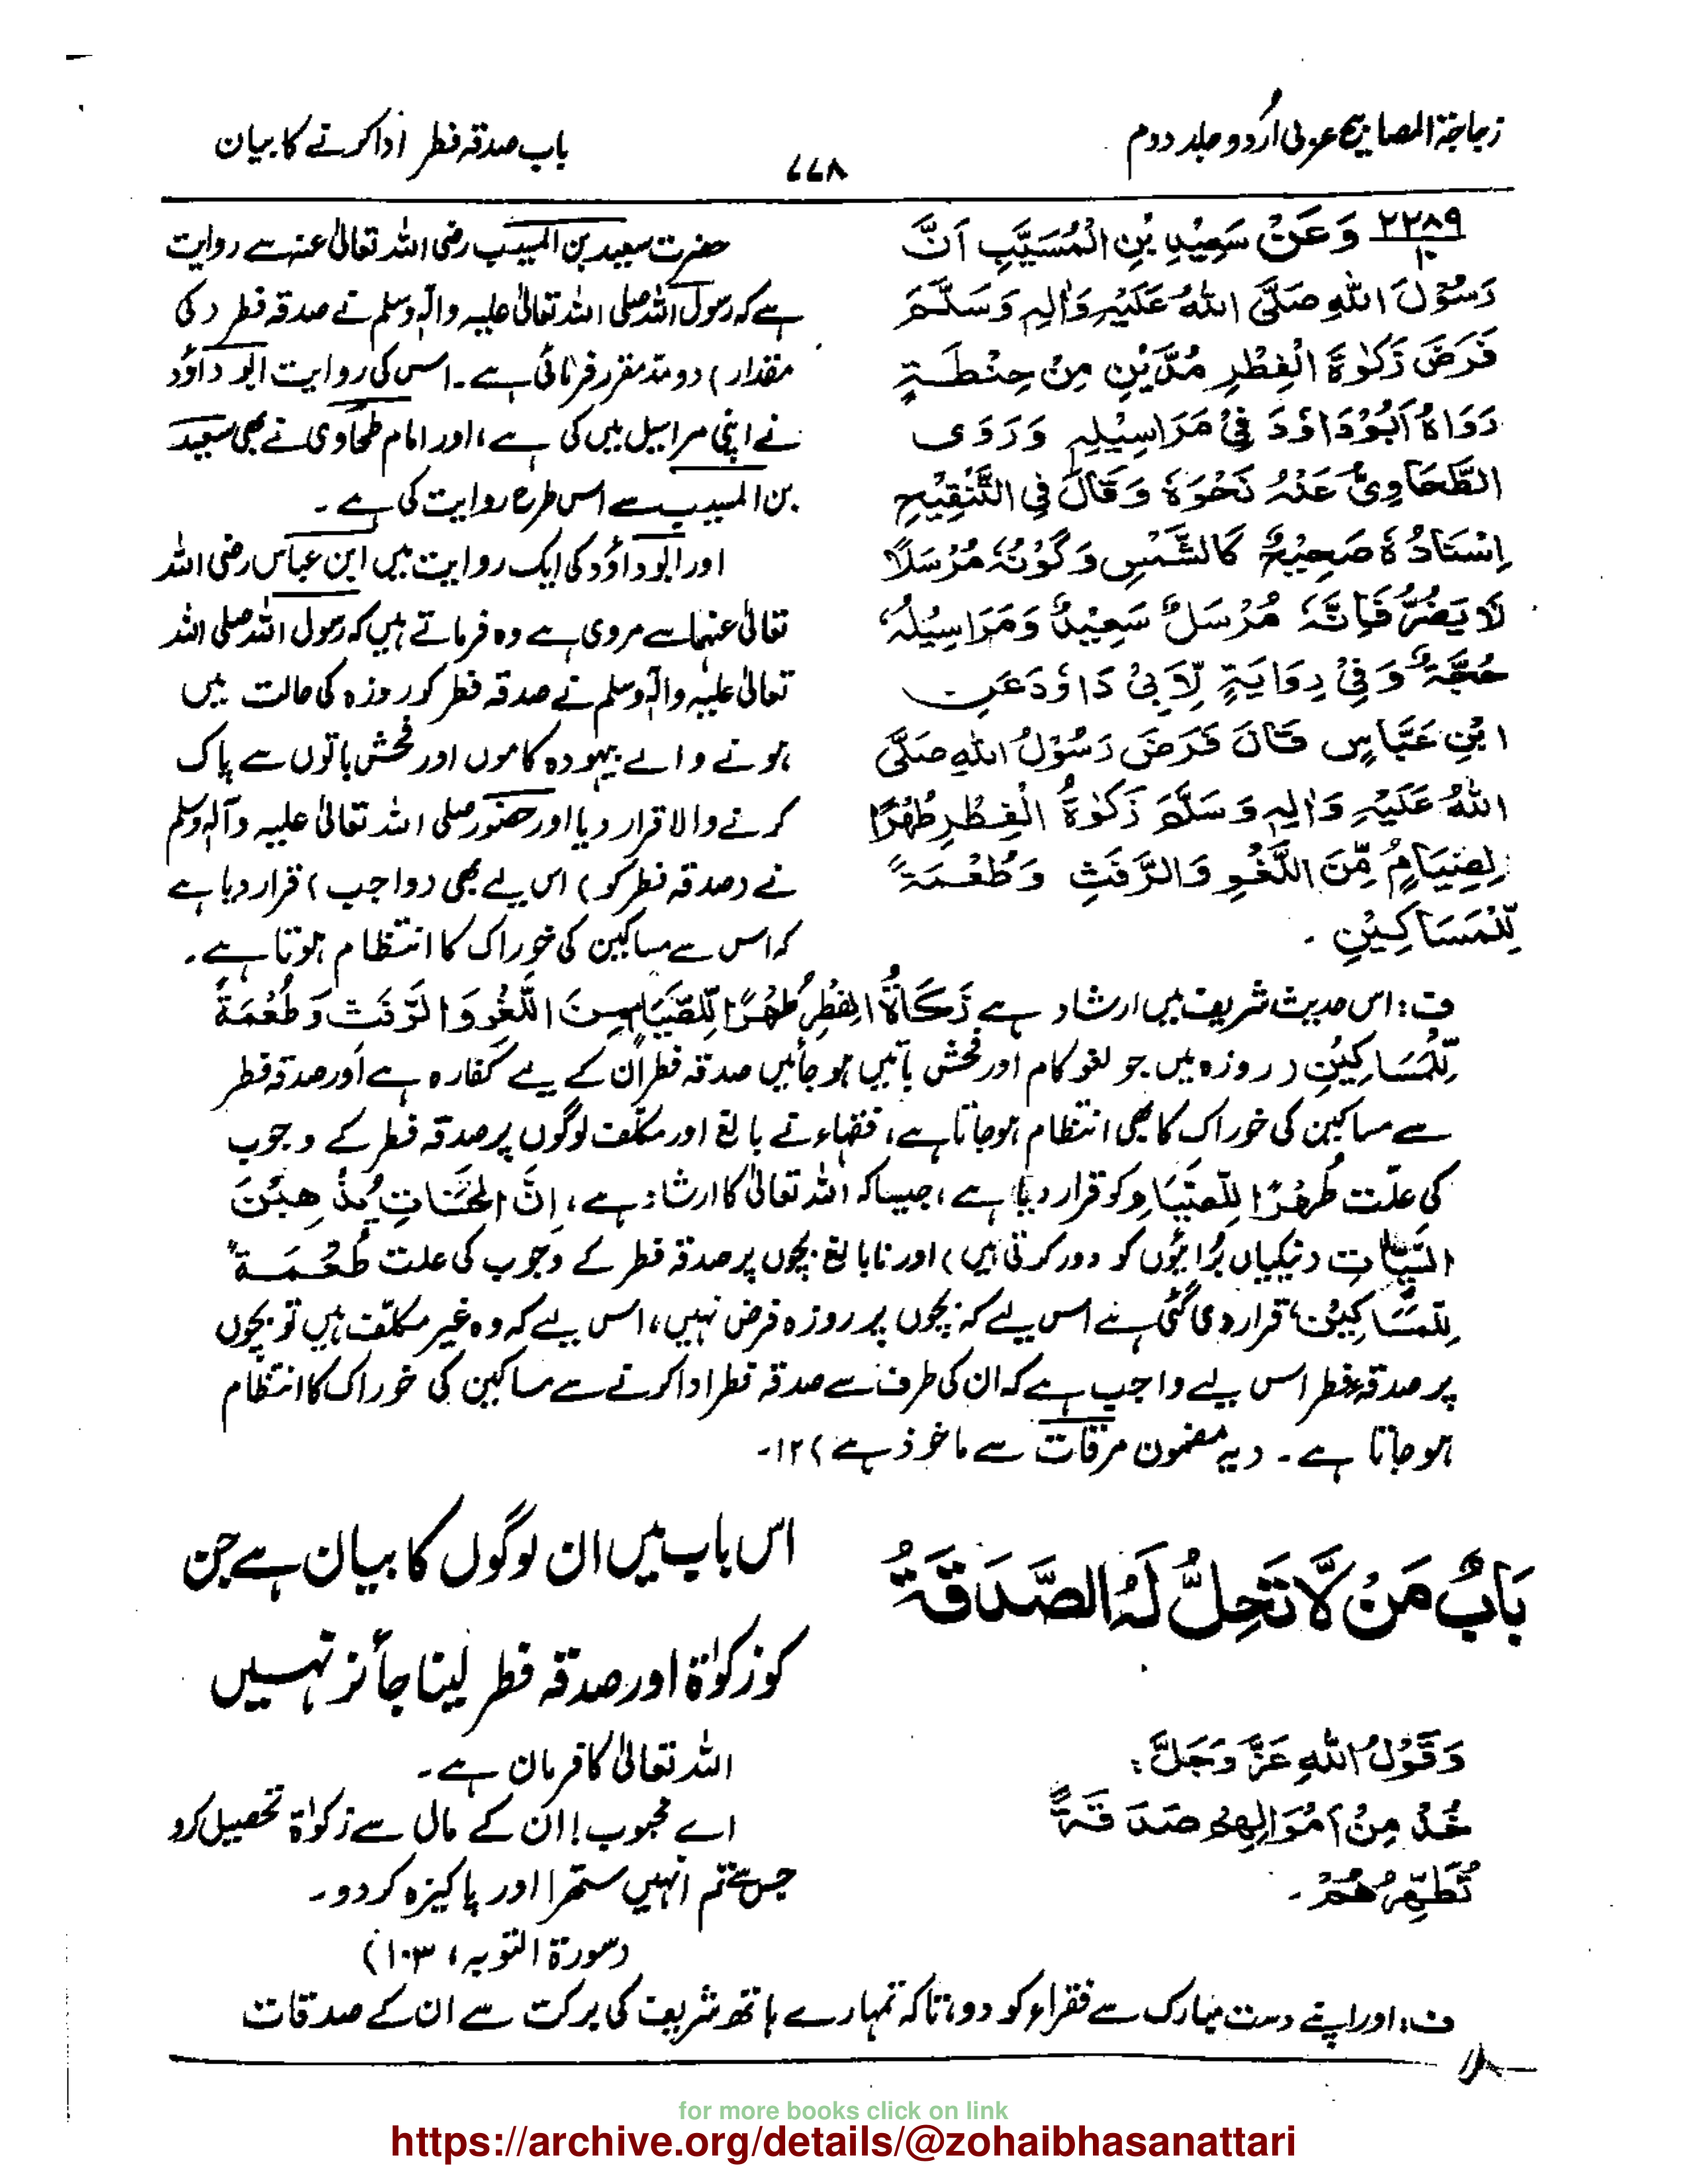 زجاجۃ المصابیح عربی اُردو جلد دوم
۷۷۸
باب صدقہ فطر ادا کرنے کا بیان
۲۲۸۹
۱۰
وَعَنْ سَعِيْدِ بْنِ الْمُسَيَّبِ اَنَّ
رَسُوْلَ اللهِ صَلَّى اللهُ عَلَيْهِ وَاٰلِهٖ وَسَلَّمَ
فَرَضَ زَكٰوةَ الْفِطْرِ مُدَّيْنِ مِنْ حِنْطَةٍ
رَوَاهُ اَبُوْدَاوٗدَ فِيْ مَرَاسِيْلِهٖ وَرَوَى
الطَّحَاوِيُّ عَنْهُ نَحْوَهٗ وَقَالَ فِي التَّنْقِيْحِ
اِسْنَادُهٗ صَحِيْحٌ كَالشَّمْسِ وَكَوْنُهٗ مُرْسَلًا
لَا يَضُرُّ فَاِنَّهٗ مُرْسَلُ سَعِيْدٍ وَمَرَاسِيْلُهٗ
حُجَّةٌ وَفِيْ رِوَايَةٍ لِّاَبِيْ دَاوٗدَ عَنِ
ابْنِ عَبَّاسٍ قَالَ فَرَضَ رَسُوْلُ اللهِ صَلَّى
اللهُ عَلَيْهِ وَاٰلِهٖ وَسَلَّمَ زَكٰوةَ الْفِطْرِ طُهْرًا
لِصِيَامٍ مِّنَ اللَّغْوِ وَالرَّفَثِ وَطُعْمَةً
لِّلْمَسَاكِيْنِ ۔
حضرت سعید بن المسیب رضی اللہ تعالیٰ عنہ سے روایت
ہے کہ رسول اللہ صلی اللہ تعالیٰ علیہ وآلہٖ وسلم نے صدقہ فطر (کی
مقدار) دو مُد مقرر فرمائی ہے۔ اس کی روایت ابو داؤد
نے اپنی مراسیل میں کی ہے، اور امام طحاوی نے بھی سعید
بن المسیب سے اسی طرح روایت کی ہے ۔
اور ابو داؤد کی ایک روایت میں ابن عباس رضی اللہ
تعالیٰ عنہما سے مروی ہے وہ فرماتے ہیں کہ رسول اللہ صلی اللہ
تعالیٰ علیہ وآلہٖ وسلم نے صدقہ فطر کو روزہ کی حالت میں
ہونے والے بیہودہ کاموں اور فحش باتوں سے پاک
کرنے والا قرار دیا اور حضور صلی اللہ تعالیٰ علیہ وآلہٖ وسلم
نے (صدقہ فطر کو) اس لیے بھی (واجب) قرار دیا ہے
کہ اس سے مساکین کی خوراک کا انتظام ہوتا ہے۔
ف: اس حدیث شریف میں ارشاد ہے زَكَاةُ الْفِطْرِ طُهْرًا لِّلصِّيَامِ مِنَ اللَّغْوِ وَالرَّفَثِ وَطُعْمَةً
لِّلْمَسَاكِيْنِ (روزہ میں جو لغو کام اور فحش باتیں ہو جائیں صدقہ فطر اُن کے لیے کفارہ ہے اور صدقہ فطر
سے مساکین کی خوراک کا بھی انتظام ہوجاتا ہے، فقہاء نے بالغ اور مکلّف لوگوں پر صدقہ فطر کے وجوب
کی علّت طُهْرًا لِلصِّيَامِ کو قرار دیا ہے، جیسا کہ اللہ تعالیٰ کا ارشاد ہے، اِنَّ الْحَسَنَاتِ يُذْهِبْنَ
السَّيِّاٰتِ (نیکیاں بُرائیوں کو دور کرتی ہیں) اور نابالغ بچوں پر صدقہ فطر کے وجوب کی علت طُعْمَةً
لِلْمَسَاكِيْنِ قرار دی گئی ہے اس لیے کہ بچوں پر روزہ فرض نہیں، اس لیے کہ وہ غیر مکلّف ہیں تو بچوں
پر صدقہ فطر اس لیے واجب ہے کہ ان کی طرف سے صدقہ فطر ادا کرنے سے مساکین کی خوراک کا انتظام
ہوجاتا ہے ۔ (یہ مضمون مرقات سے ماخوذ ہے) ۱۲۔
بَابُ مَنْ لَّا تَحِلُّ لَهُ الصَّدَقَةُ
اس باب میں ان لوگوں کا بیان ہے جن
کو زکوٰۃ اور صدقہ فطر لینا جائز نہیں
وَقَوْلُ اللهِ عَزَّ وَجَلَّ:
خُذْ مِنْ اَمْوَالِهِمْ صَدَقَةً
تُطَهِّرُهُمْ ۔
اللہ تعالیٰ کا فرمان ہے ۔
اے محبوب! ان کے مال سے زکوٰۃ تحصیل کرو
جس سے تم انہیں ستھرا اور پاکیزہ کر دو ۔
(سورۃ التوبہ، ۱۰۳)
ف: اور اپنے دست مبارک سے فقراء کو دو، تاکہ تمہارے ہاتھ شریف کی برکت سے ان کے صدقات
for more books click on link
https://archive.org/details/@zohaibhasanattari